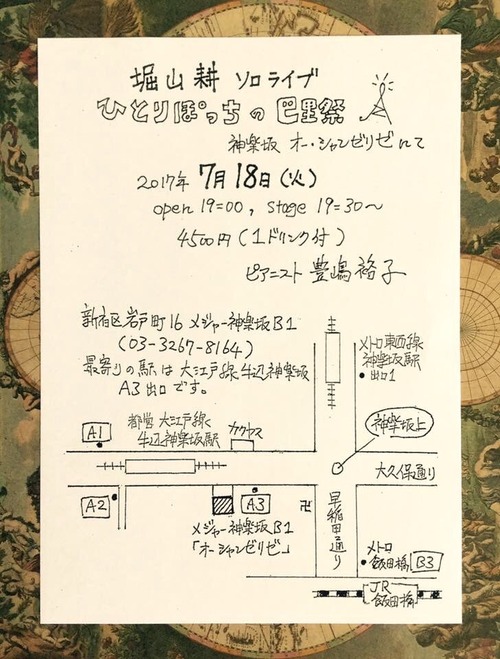 堀山耕 ソロライブ
ひとりぼっちの巴里祭
神楽坂 オー・シャンゼリゼにて
2017年 7月18日(火)
open 19=00, stage 19=30〜
4500円(1ドリンク付)
ピアニスト 豊嶋裕子
新宿区岩戸町16 メジャー神楽坂B1
(03-3267-8164)
最寄りの駅は大江戸線牛込神楽坂
A3出口です。
メトロ東西線
神楽坂駅
出口1
都営大江戸線
牛込神楽坂駅
カクヤス
A1
神楽坂上
大久保通り
A2
A3
卍
早稲田通り
メジャー神楽坂B1
「オーシャンゼリゼ」
メトロ
飯田橋 B3
JR
飯田橋